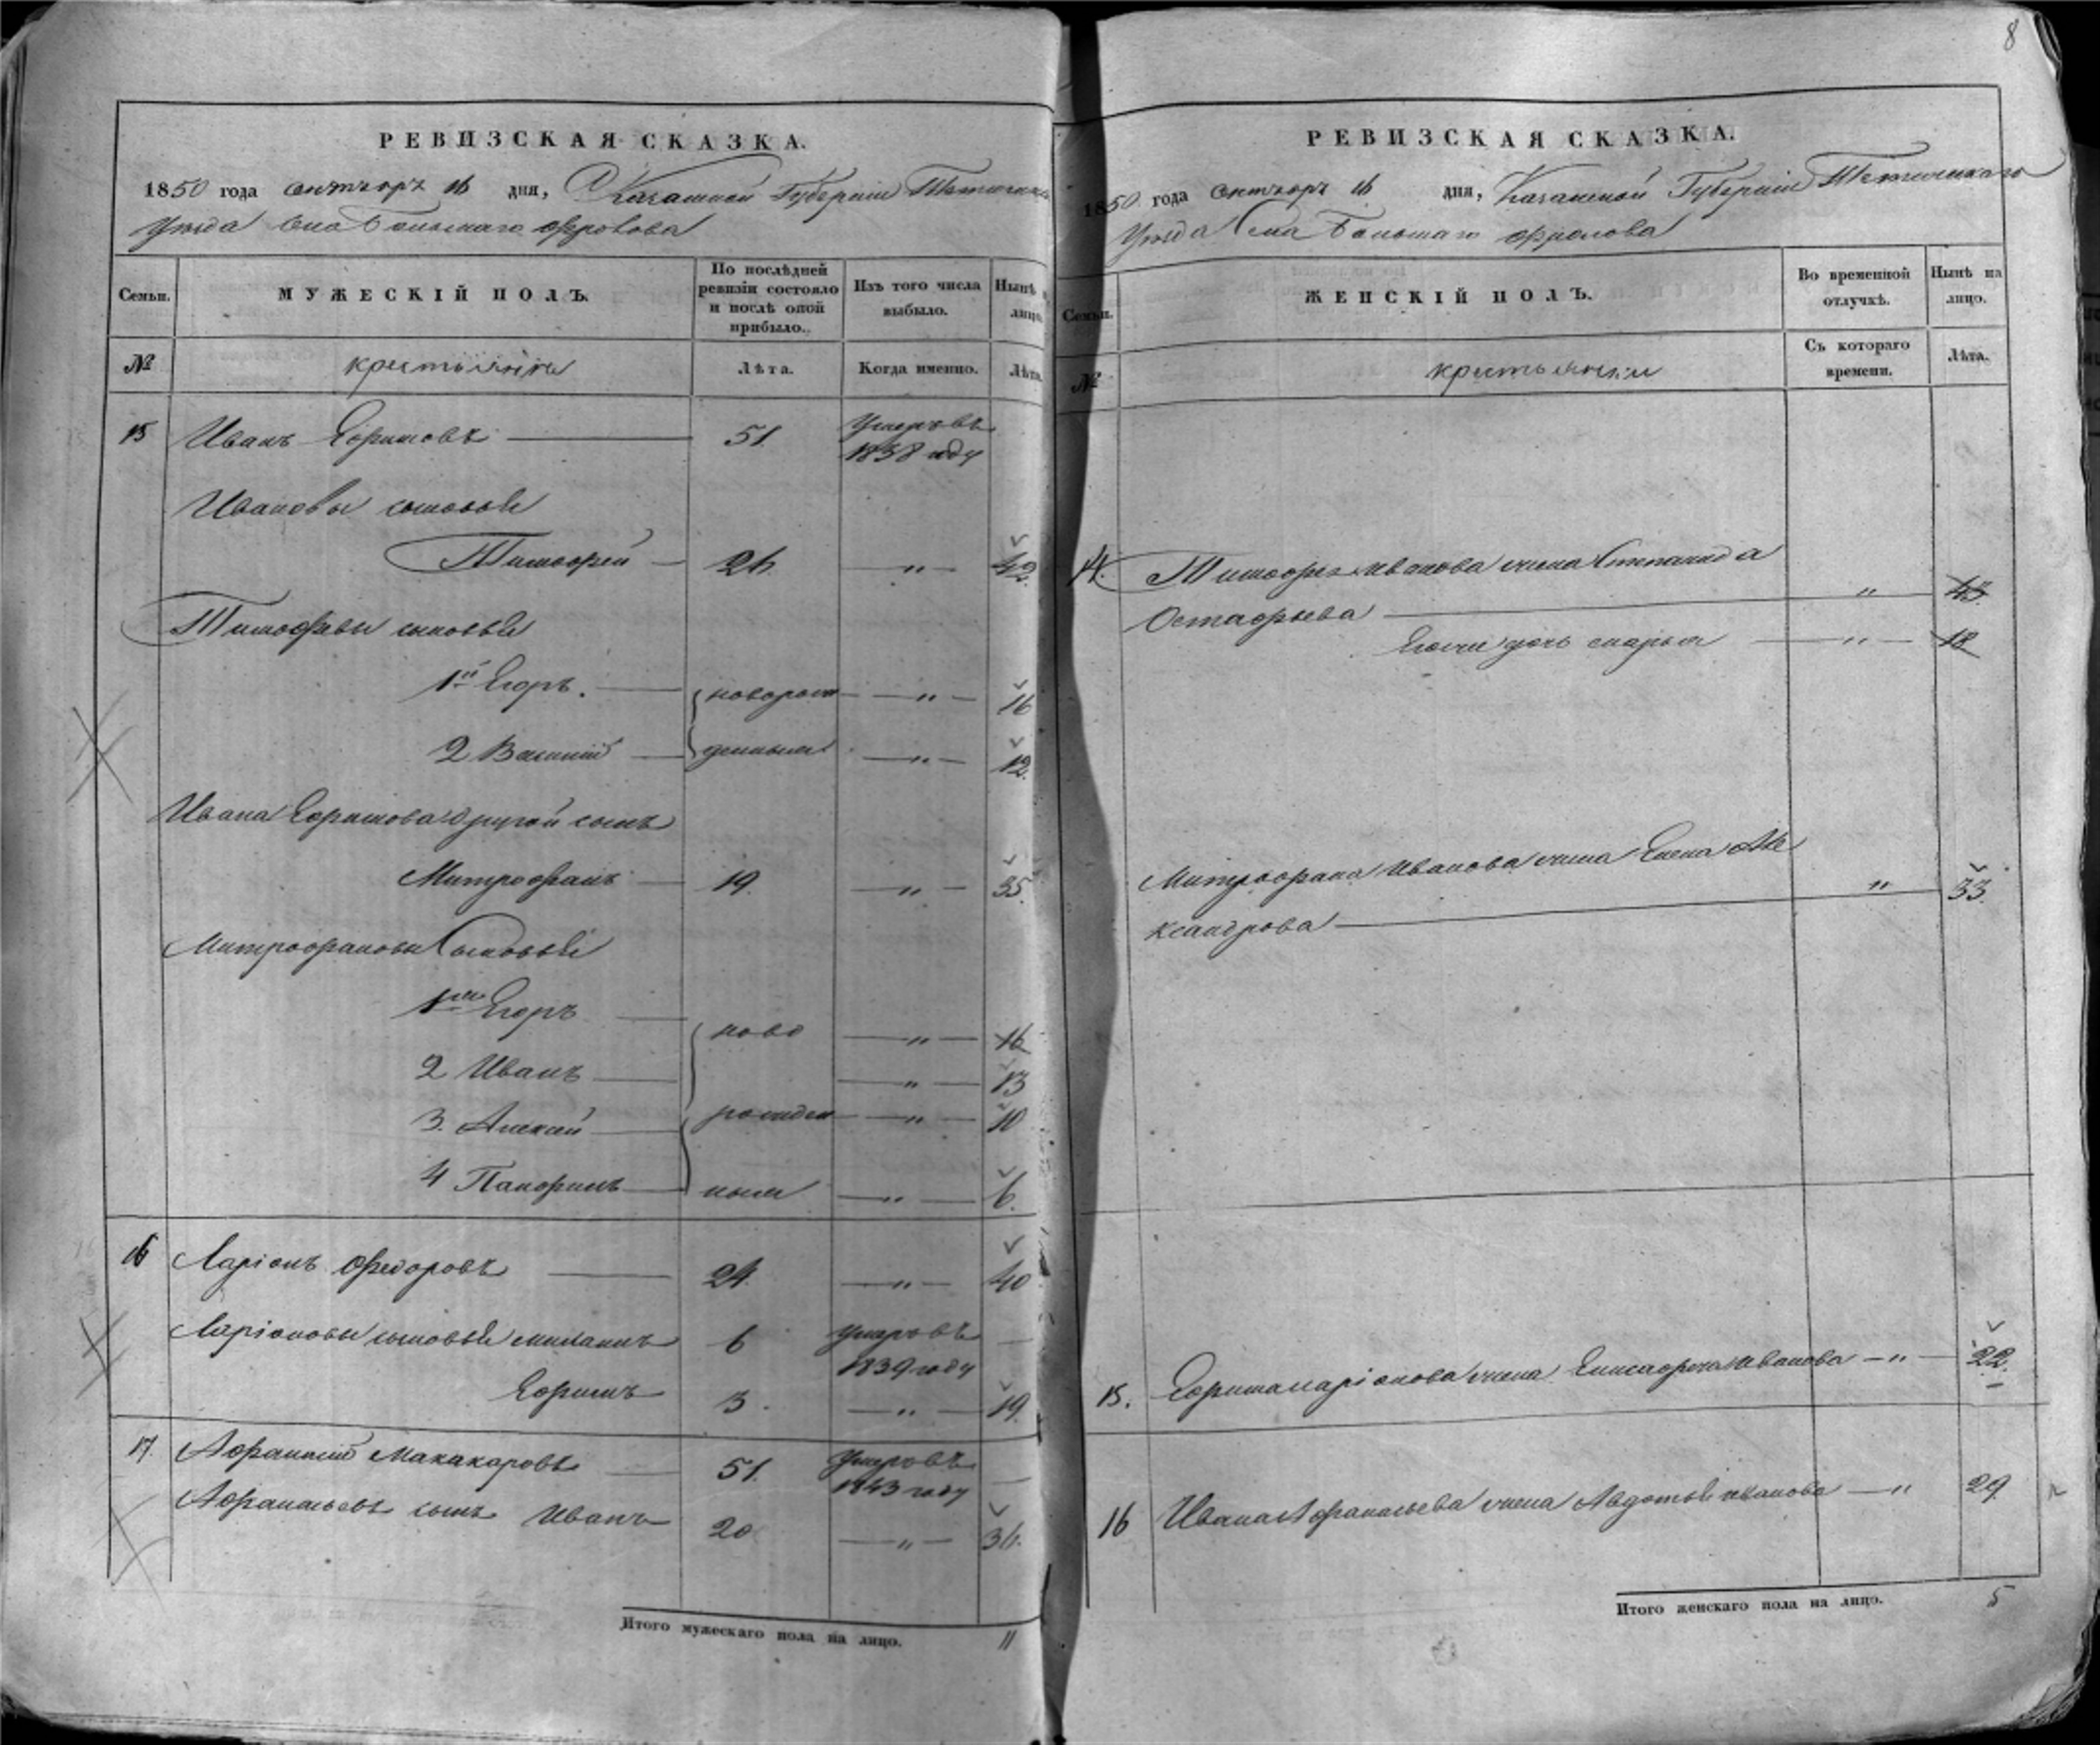 8
РЕВИЗСКАЯ СКАЗКА.
1850 года октября 16 дня, Казанской Губерніи Тетюшскаго
Уѣзда Села Большаго Фролова
Семьи. МУЖЕСКІЙ ПОЛЪ. По послѣдней ревизіи состояло и послѣ оной прибыло. Изъ того числа выбыло. Нынѣ на лицо.
№ крестьяне Лѣта. Когда именно. Лѣта.
15 Иванъ Ефимовъ 51. Умеръ въ
1838 году
Ивановы сыновья
Тимофей 26 " 42.
Тимофеевы сыновья
1й Егоръ. новорож " 16
2 Василий денныя " 12.
Ивана Ефимова другой сынъ
Митрофанъ 19. " 35.
Митрофановы Сыновья
1й Егоръ ново " 16
2 Иванъ " 13
3. Алексей рожден " 10
4 Панфилъ ныя " 6.
16 Ларіонъ Федоровъ 24. " 40
Ларіоновы сыновья 6 умеръ въ
1839 году
Ефимъ 3. " 19.
17. Афанасий Макакаровъ 51. Умеръ въ
1843 году
Афанасьевъ сынъ Иванъ 20 " 36.
Итого мужескаго пола на лицо. 11
РЕВИЗСКАЯ СКАЗКА.
1850 года октября 16 дня, Казанской Губерніи Тетюшскаго
Уѣзда Села Большаго Фролова
Семьи. ЖЕНСКІЙ ПОЛЪ. Во временной отлучкѣ. Нынѣ на лицо.
№ крестьянки Съ котораго времени. Лѣта.
14. Тимофея Иванова жена Степанида
Остафьева " 43.
Ево же дочь Марья " 18
Митрофана Иванова жена Елена Але
ксандрова " 33.
15. Ефима Ларіонова жена Елисафета Иванова " 22.
16 Ивана Афанасьева жена Авдотья Иванова " 29.
Итого женскаго пола на лицо. 5